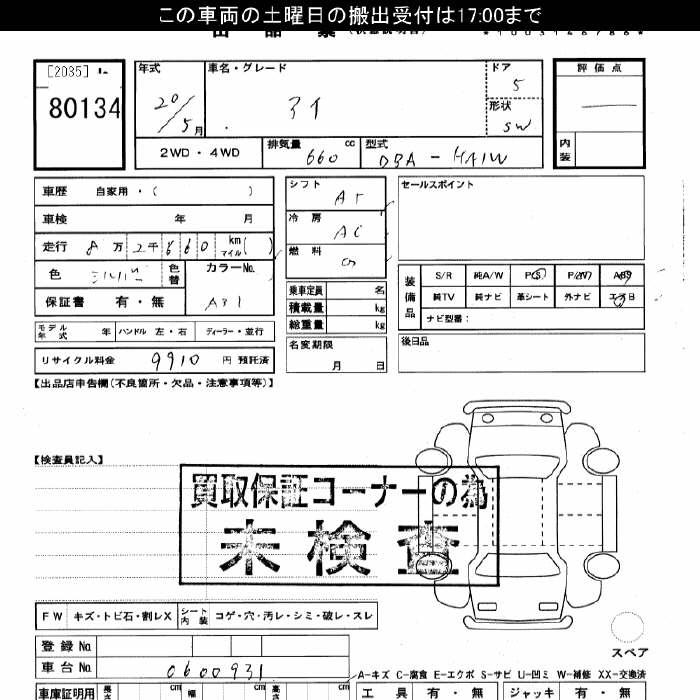 この車両の土曜日の搬出受付は17:00まで
[2035]
80134
年式
20/5月
車名・グレード
アイ
ドア
5
形状
SW
評価点
内装
2WD・4WD
排気量 660 cc
型式 DBA-HA1W
車歴 自家用・( )
車検 年 月
走行 8万2千660 km マイル( )
色 シルバー 色替
カラーNo. A31
保証書 有・無
シフト AT
冷房 AC
燃料 G
乗車定員 名
積載量 kg
総重量 kg
名変期限 月 日
セールスポイント
装備品
S/R 純A/W P(S) P/W ABS
純TV 純ナビ 革シート 外ナビ エアB
ナビ型番:
後日品
モデル年式 年 ハンドル 左・右 ディーラー・並行
リサイクル料金 9910 円 預託済
【出品店申告欄(不良箇所・欠品・注意事項等)】
【検査員記入】
買取保証コーナーの為
未検査
FW キズ・トビ石・割レX シート内装 コゲ・穴・汚レ・シミ・破レ・スレ
スペア
登録No.
車台No. 0600931
A-キズ C-腐食 E-エクボ S-サビ U-凹ミ W-補修 XX-交換済
車庫証明用 長さ cm 幅 cm 高さ cm
工具 有・無 ジャッキ 有・無